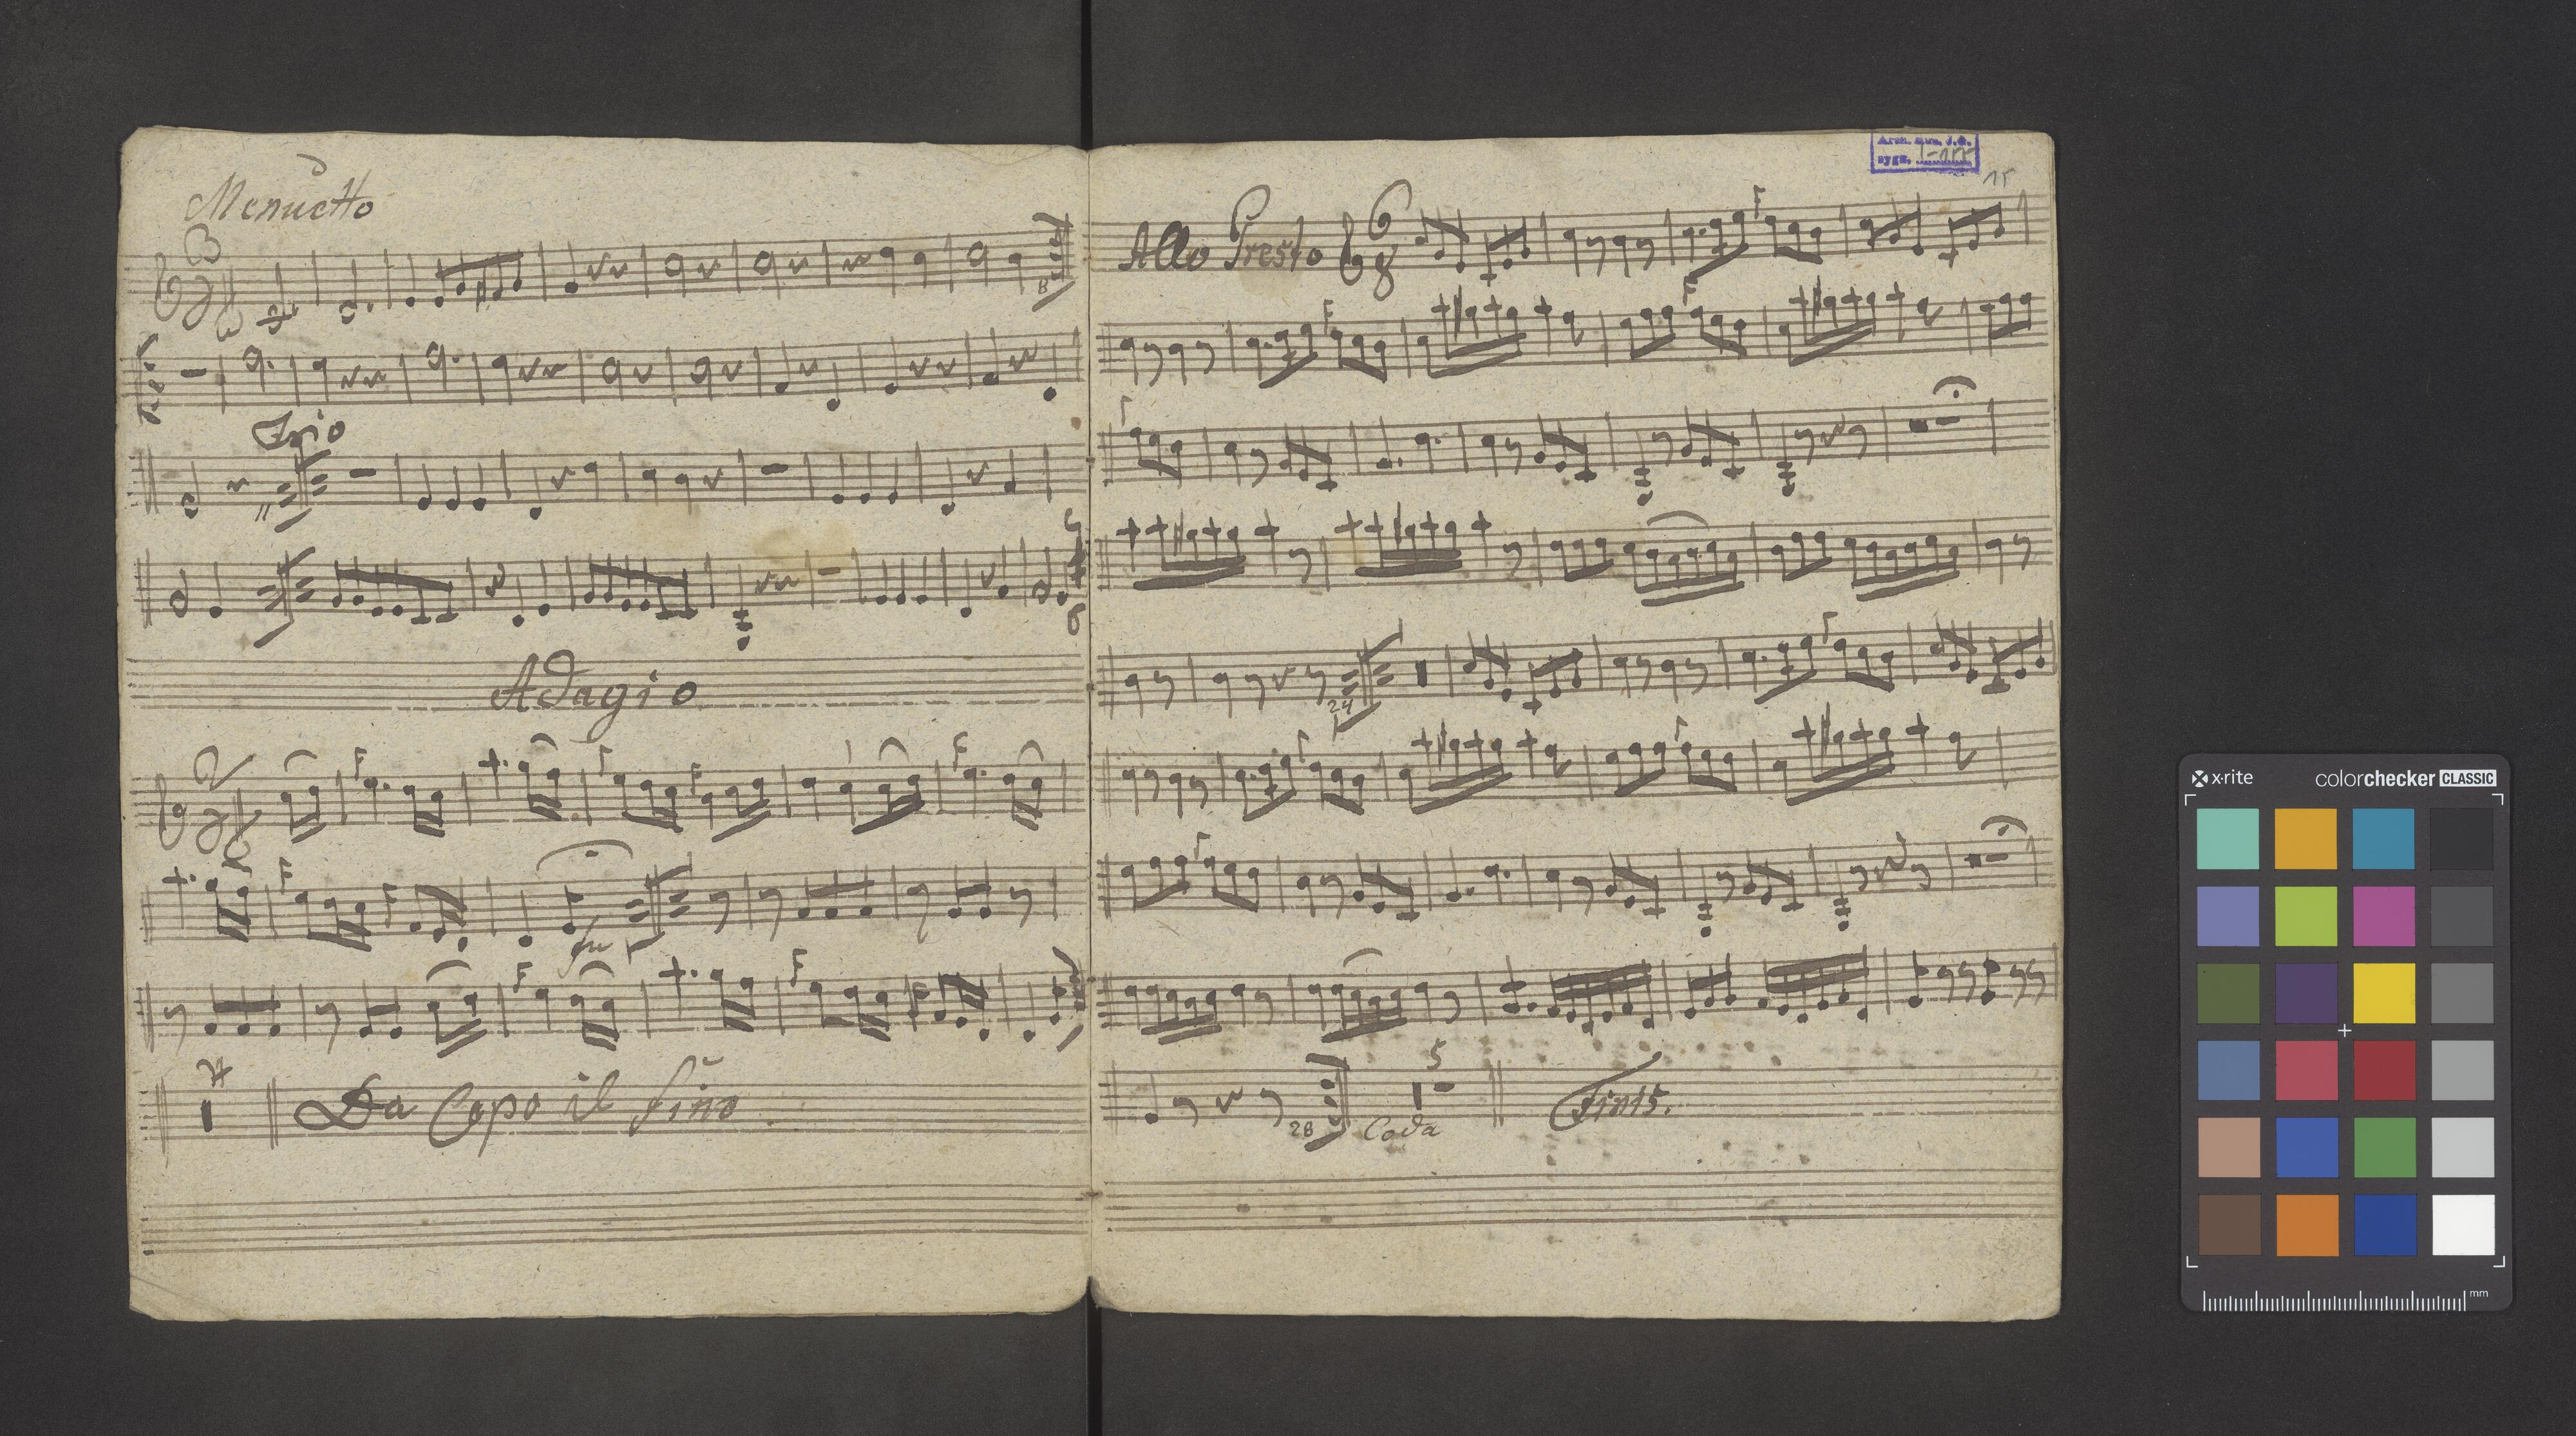 Menuetto
3
8
Trio
Adagio
2
fin
Da Capo il fino
Arch. mus. J. G.
sygn.
15
Allo Presto 6
8
24
5
28 Coda
Finis.
x-rite
colorchecker CLASSIC
mm